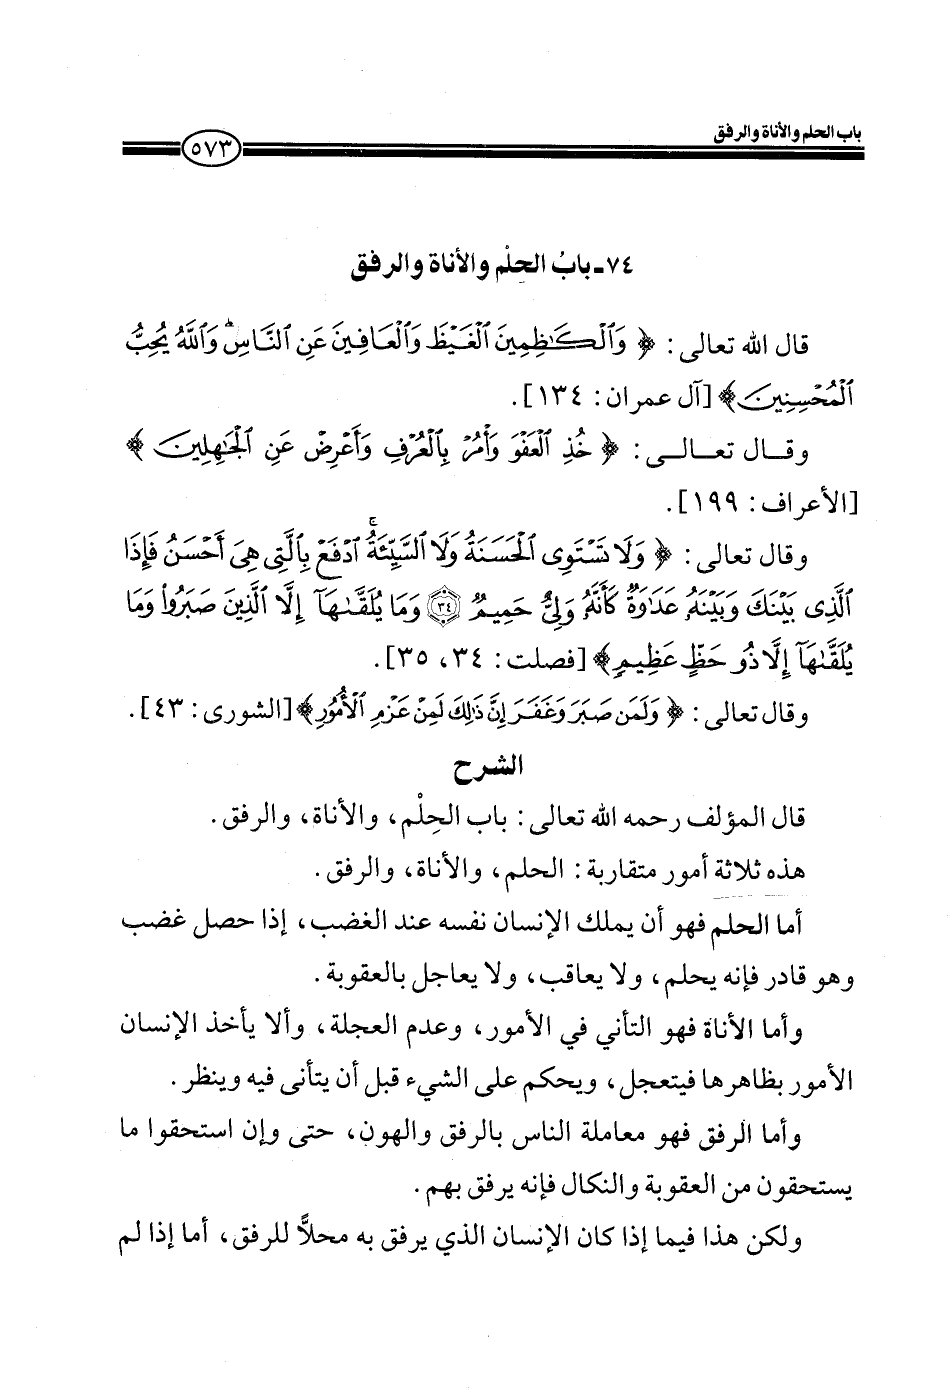 باب الحلم والأناة والرفق
٥٧٣
٧٤- بابُ الحِلْم والأناة والرفق
قال الله تعالى: ﴿ وَٱلۡكَٰظِمِينَ ٱلۡغَيۡظَ وَٱلۡعَافِينَ عَنِ ٱلنَّاسِۗ وَٱللَّهُ يُحِبُّ
ٱلۡمُحۡسِنِينَ ﴾ [آل عمران: ١٣٤].
وقـال تعـالـى: ﴿ خُذِ ٱلۡعَفۡوَ وَأۡمُرۡ بِٱلۡعُرۡفِ وَأَعۡرِضۡ عَنِ ٱلۡجَٰهِلِينَ ﴾
[الأعراف: ١٩٩].
وقال تعالى: ﴿ وَلَا تَسۡتَوِي ٱلۡحَسَنَةُ وَلَا ٱلسَّيِّئَةُۚ ٱدۡفَعۡ بِٱلَّتِي هِيَ أَحۡسَنُ فَإِذَا
ٱلَّذِي بَيۡنَكَ وَبَيۡنَهُۥ عَدَٰوَةٞ كَأَنَّهُۥ وَلِيٌّ حَمِيمٞ ٣٤ وَمَا يُلَقَّىٰهَآ إِلَّا ٱلَّذِينَ صَبَرُواْ وَمَا
يُلَقَّىٰهَآ إِلَّا ذُو حَظٍّ عَظِيمٖ ﴾ [فصلت: ٣٤، ٣٥].
وقال تعالى: ﴿ وَلَمَن صَبَرَ وَغَفَرَ إِنَّ ذَٰلِكَ لَمِنۡ عَزۡمِ ٱلۡأُمُورِ ﴾ [الشورى: ٤٣].
الشرح
قال المؤلف رحمه الله تعالى: باب الحِلْم، والأناة، والرفق.
هذه ثلاثة أمور متقاربة: الحلم، والأناة، والرفق.
أما الحلم فهو أن يملك الإنسان نفسه عند الغضب، إذا حصل غضب
وهو قادر فإنه يحلم، ولا يعاقب، ولا يعاجل بالعقوبة.
وأما الأناة فهو التأني في الأمور، وعدم العجلة، وألا يأخذ الإنسان
الأمور بظاهرها فيتعجل، ويحكم على الشيء قبل أن يتأنى فيه وينظر.
وأما الرفق فهو معاملة الناس بالرفق والهون، حتى وإن استحقوا ما
يستحقون من العقوبة والنكال فإنه يرفق بهم.
ولكن هذا فيما إذا كان الإنسان الذي يرفق به محلاًّ للرفق، أما إذا لم